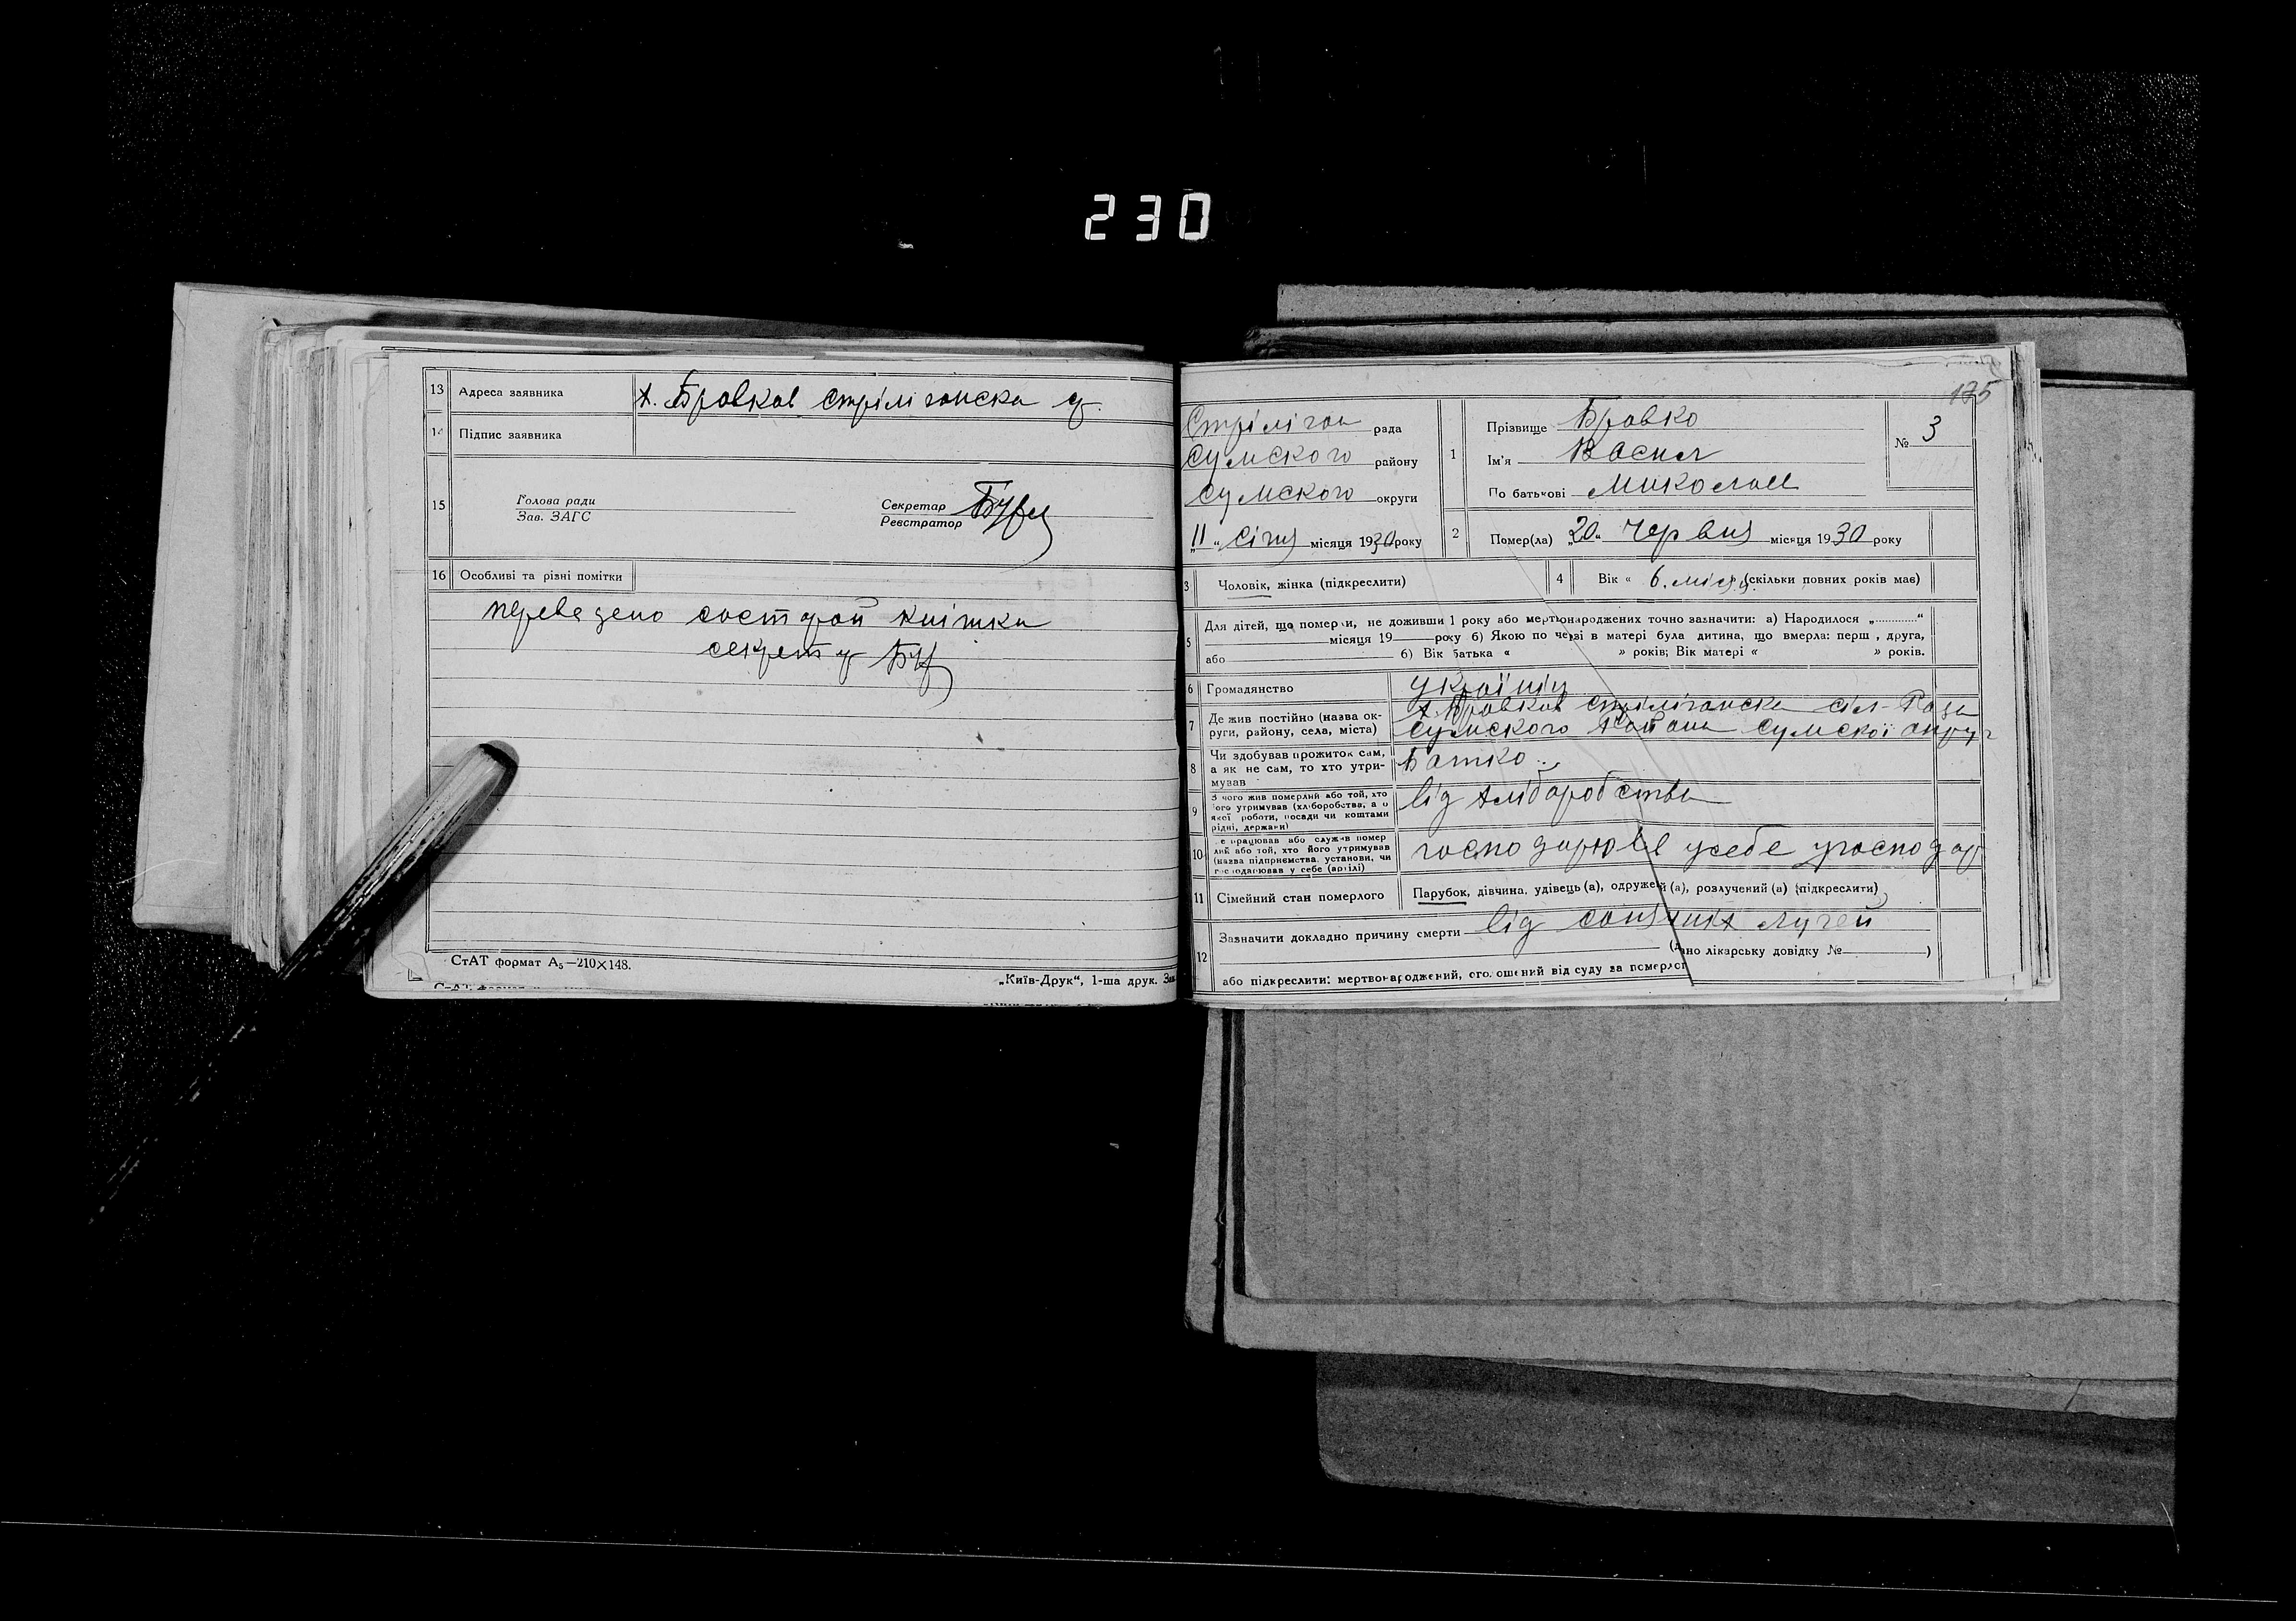 230
13 Адреса заявника х. Бровков стрілігонска с.
14 Підпис заявника
15 Голова ради
Зав. ЗАГС
Секретар
Реєстратор
16 Особливі та різні помітки
переведено состарой книжки
секретар
СтАТ формат А₅—210×148.
„Київ-Друк“, 1-ша друк. Зам
175
Стрілігон рада
Сумского району
Сумского округи
„11“ січня місяця 1930 року
1 Прізвище Бровко
Ім'я Васил
По батькові Миколаев
№ 3
2 Помер(ла) „20“ червня місяця 1930 року
3 Чоловік, жінка (підкреслити)
4 Вік « 6. місяц. (скільки повних років має)
5 Для дітей, що померли, не доживши 1 року або мертвонароджених точно зазначити: а) Народилося „............“
місяця 19 року б) Якою по черзі в матері була дитина, що вмерла: перш , друга,
або б) Вік батька « » років; Вік матері « » років.
6 Громадянство українц
7 Де жив постійно (назва округи, району, села, міста) х. Бровков стрілігонска сіл-Рада
Сумского Район Сумскої округ
8 Чи здобував прожиток сам,
а як не сам, то хто утримував
Батко
9 З чого жив померлий або той, хто
його утримував (хліборобства, а о
якої роботи, посади чи коштами
рідні, держави)
від хліборобства
10 Де працював або служив померлий або той, хто його утримував
(назва підприємства, установи, чи
господарював у себе (артілі)
господарював усебе угосподар
11 Сімейний стан померлого Парубок, дівчина, удівець (а), одружей (а), розлучений (а) (підкреслити)
12 Зазначити докладно причину смерти від соняших лучей
(дано лікарську довідку № )
або підкреслити: мертвонароджений, оголошений від суду за померлог